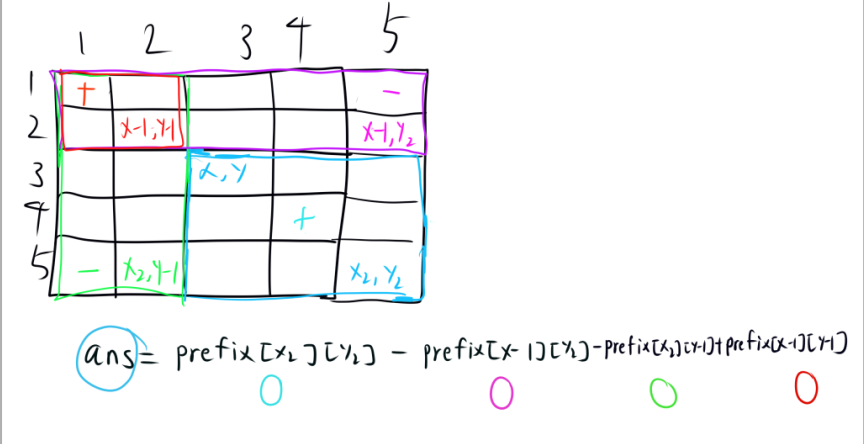 1 2 3 4 5
1 + -
2 x-1,y-1 x-1,y₂
3 x,y
4 +
5 - x₂,y-1 x₂,y₂
ans = prefix[x₂][y₂] - prefix[x-1][y₂] - prefix[x₂][y-1] + prefix[x-1][y-1]